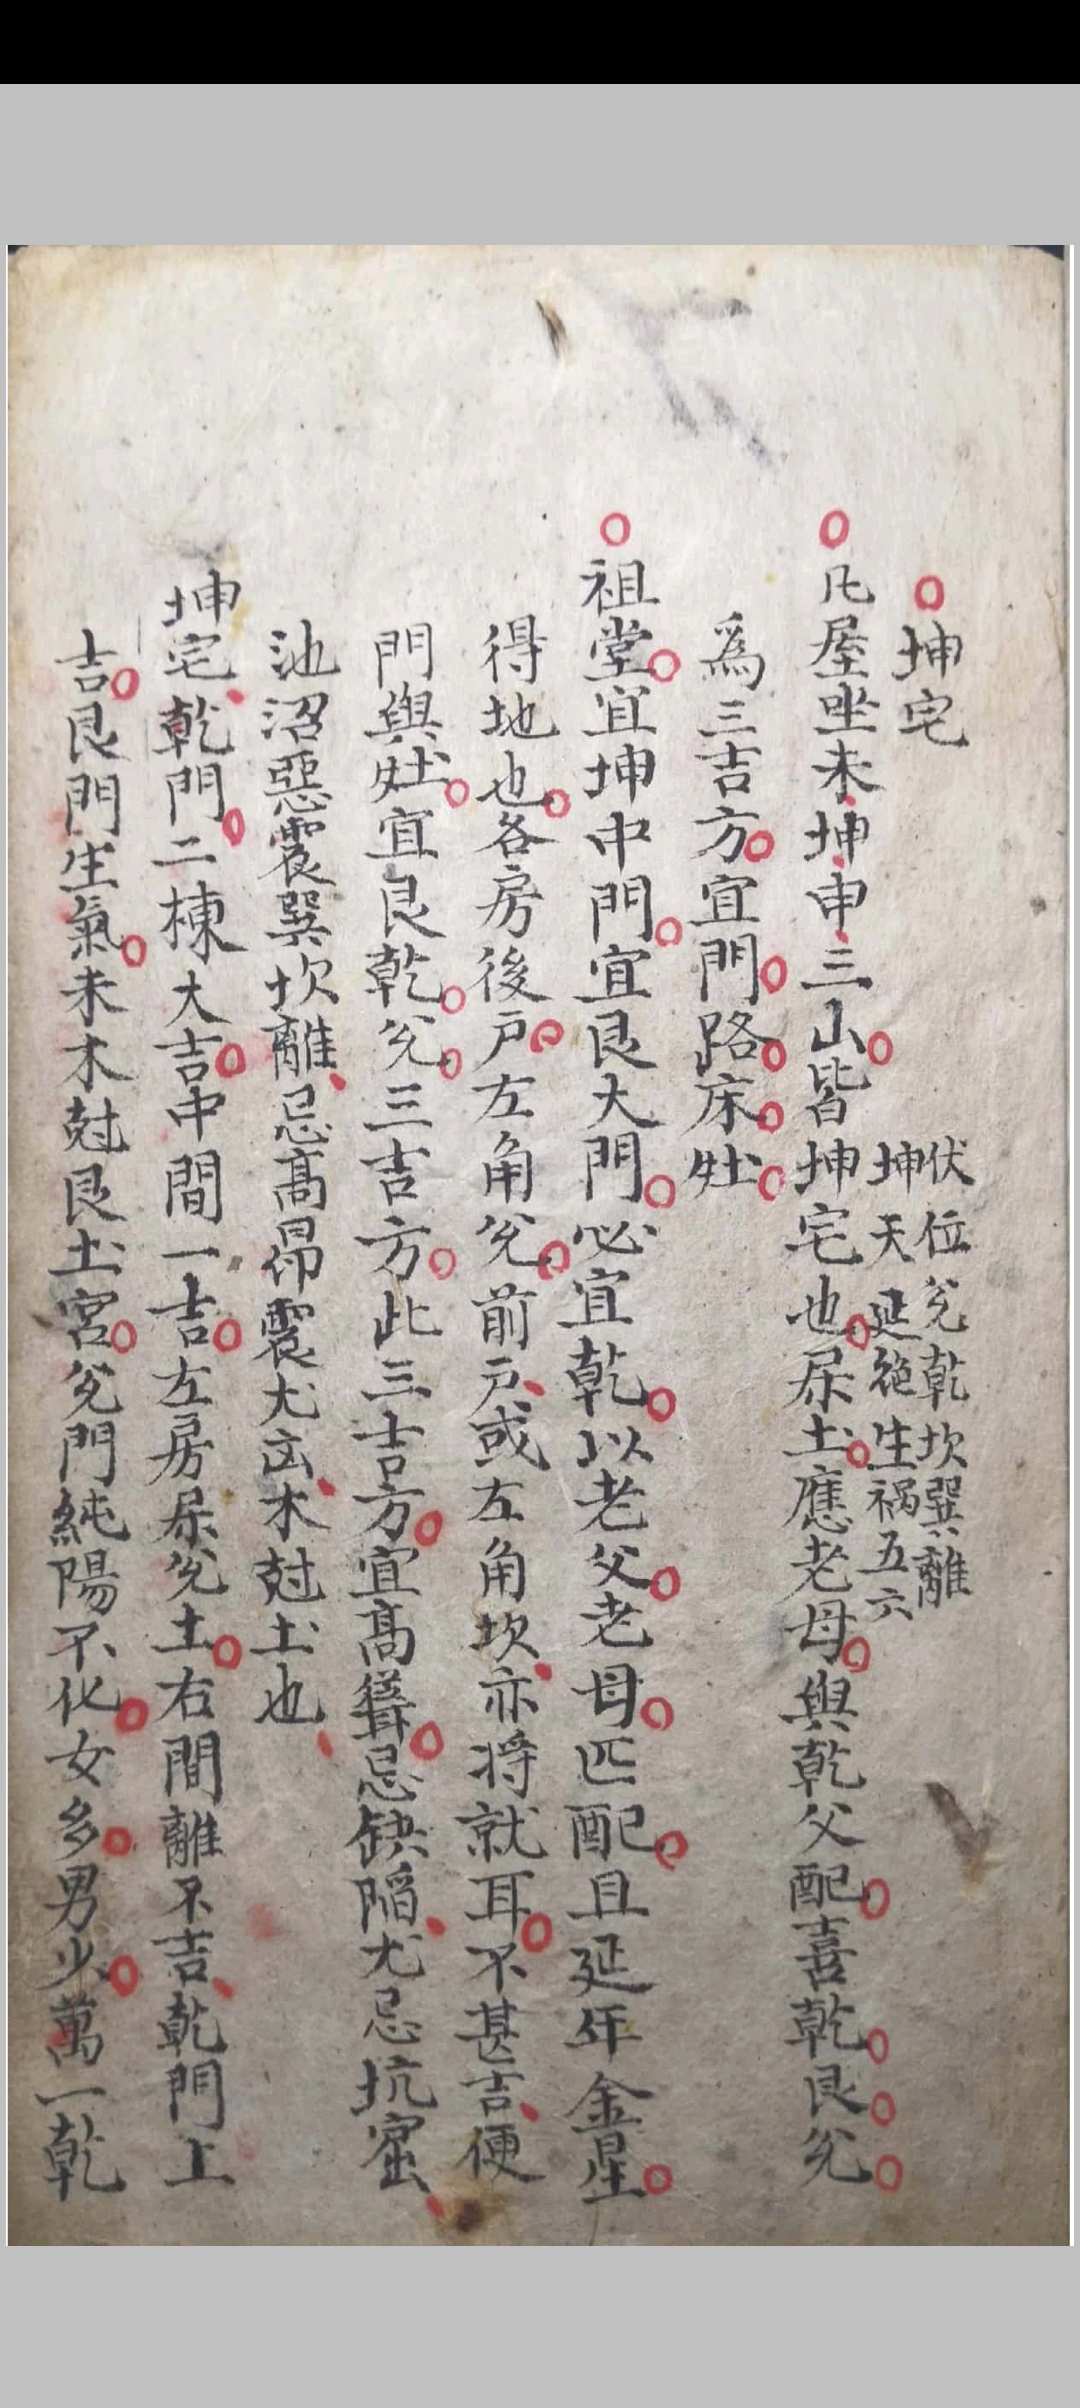 坤宅
伏位兊乾坎巽離
坤天延絶生祸五六
凡屋坐未坤申三山皆坤宅也屎土應老母與乾父配喜乾艮兊
爲三吉方宜門路床灶
祖堂宜坤中門宜艮大門必宜乾以老父老母匹配且延年金星
得地也各房後戸左角兊前戸或左角坎亦将就耳不甚吉便
門與灶宜艮乾兊三吉方此三吉方宜髙聳忌缺陷尤忌坑窑
池沼惡震巽坎離忌髙昻震尤凶木尅土也
坤宅乾門二棟大吉中間一吉左房屎兊土右間離不吉乾門上
吉艮門生氣未木尅艮土宮兊門純陽不化女多男少萬一乾